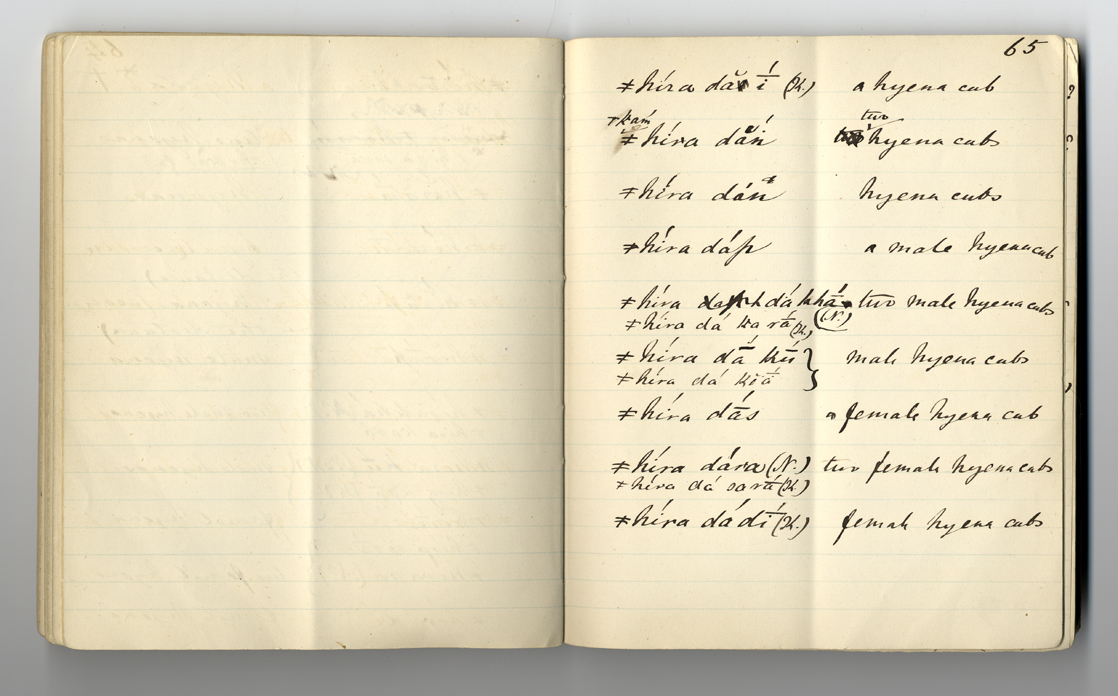 65
ǂhíra dá ī́ (K.) a hyena cub
ǂkam
two
ǂhíra dáń hyena cubs
ǂhíra dáń hyena cubs
ǂhíra dáp a male hyena cub
ǂhíra dá khā́ two male hyena cubs
ǂhíra dá ka rā́ (K.) (N.)
ǂhíra dā́ kū́ } male hyena cubs
ǂhíra dá
ǂhíra dā́s a female hyena cub
ǂhíra dára (N.) two female hyena cubs
ǂhíra dá sarā́ (K.)
ǂhíra dádī́ (K.) female hyena cubs